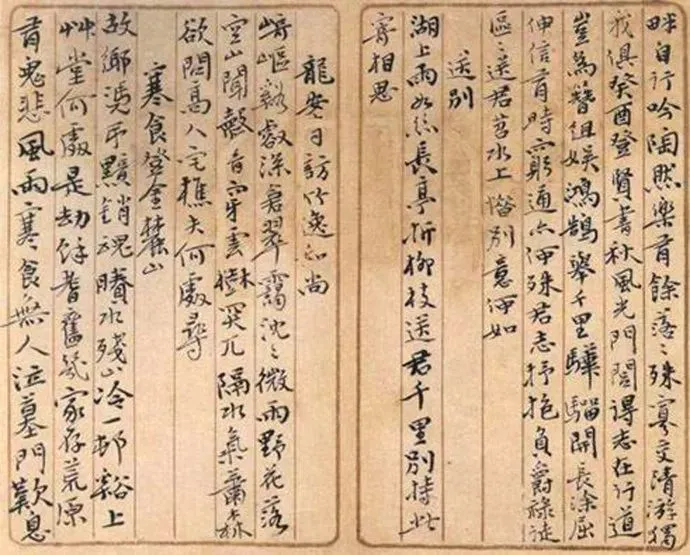 畔自行吟陶然樂有餘落〻殊寡交隋游獨
我俱癸酉登賢書秋風光門閭得志在行道
豈為簪組娱鴻鵠舉千里驊騮開長涂屈
伸信有時窮通亦何殊君志抒抱負爵祿徒
區〻送君苕水上惜別意何如
送別
湖上雨如絲長亭折柳枝送君千里別持此
寄相思
龍安日訪竹逸和尚
崎嶇谿壑深蒼翠靄沈〻微雨野花落
空山聞磬音穿雲樹突兀隔水氣肅森
欲問高人宅樵夫何處尋
寒食登金山
故鄉憑弔黯銷魂賸水殘山冷一邨谿上
艸堂何處是劫餘耆舊幾家存荒原
有鬼悲風雨寒食無人泣墓門歎息